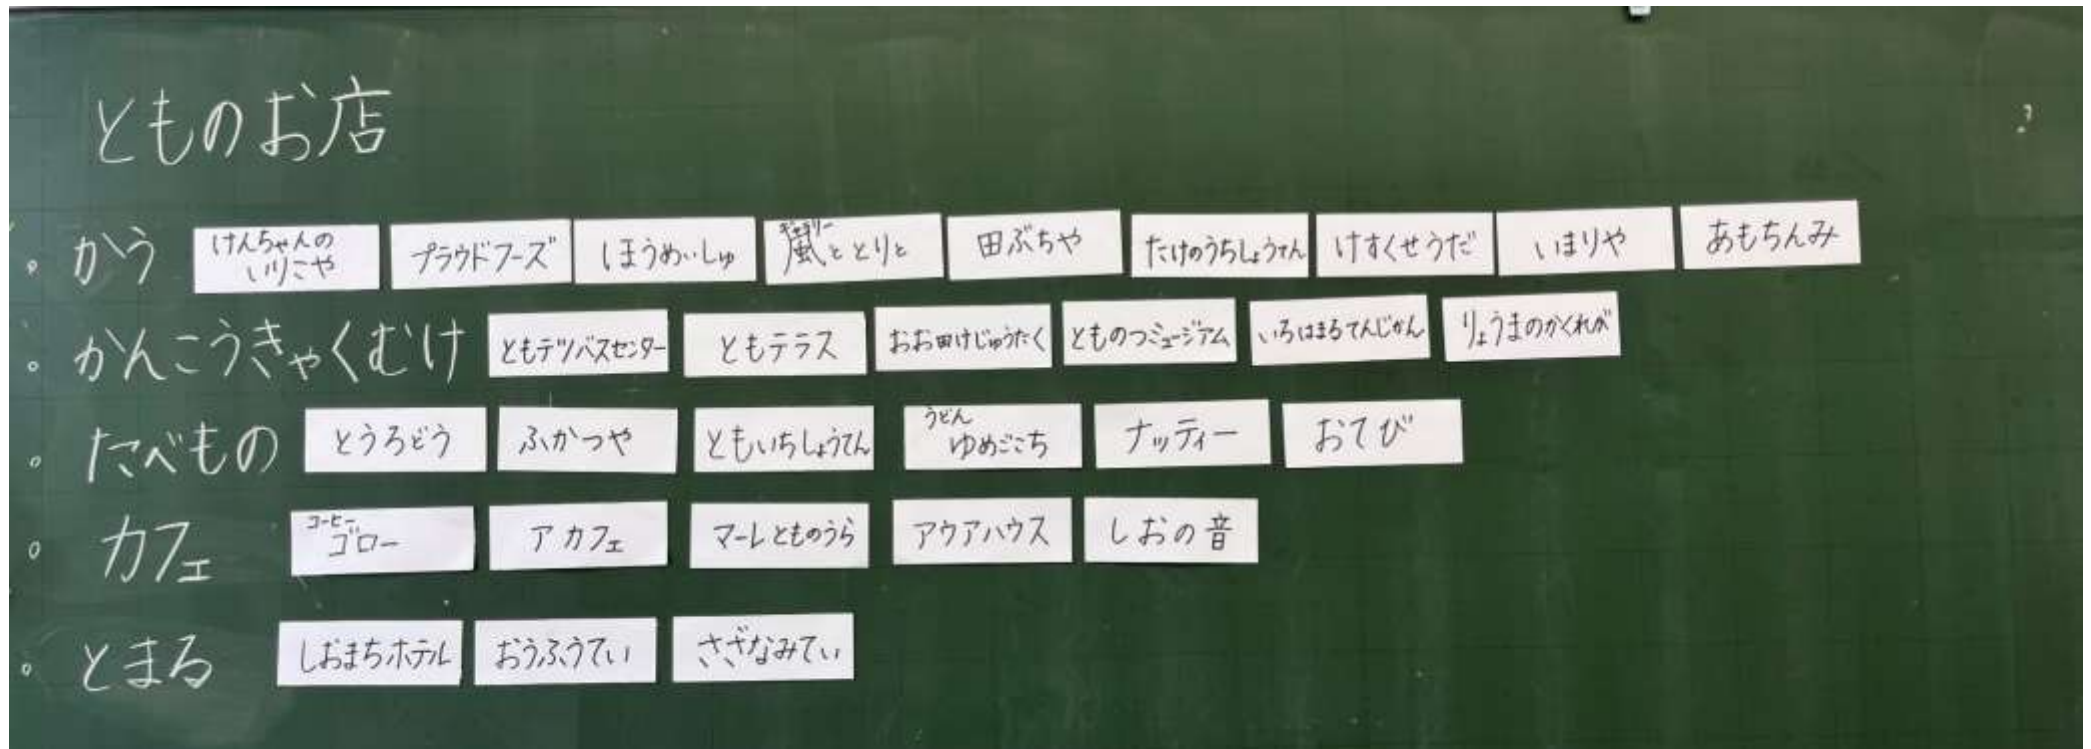 とものお店
・かう けんちゃんの いりこや プラウドフーズ ほうめいしゅ ギャラリー 嵐ととりと 田ぶちや たけのうちしょうてん けすくせうだ いまりや あもちんみ
・かんこうきゃくむけ ともテツバスセンター ともテラス おお田けじゅうたく とものつミュージアム いろはまるてんじかん りょうまのかくれが
・たべもの とうろどう ふかつや ともいちしょうてん うどん ゆめごこち ナッティー おてび
・カフェ コーヒー ゴロー アカフェ マーレとものうら アクアハウス しおの音
・とまる しおまちホテル おうふうてい さざなみてい